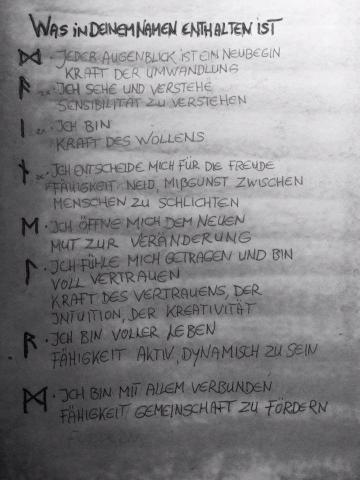 WAS IN DEINEM NAMEN ENTHALTEN IST
ᛞ · JEDER AUGENBLICK IST EIN NEUBEGIN
KRAFT DER UMWANDLUNG
ᚨ 2x · ICH SEHE UND VERSTEHE
SENSIBILITÄT ZU VERSTEHEN
ᛁ 2x · ICH BIN
KRAFT DES WOLLENS
ᚾ 2x · ICH ENTSCHEIDE MICH FÜR DIE FREUDE
FÄHIGKEIT NEID, MIßGUNST ZWISCHEN
MENSCHEN ZU SCHLICHTEN
ᛖ · ICH ÖFFNE MICH DEM NEUEN
MUT ZUR VERÄNDERUNG
ᛚ · ICH FÜHLE MICH GETRAGEN UND BIN
VOLL VERTRAUEN
KRAFT DES VERTRAUENS, DER
INTUITION, DER KREATIVITÄT
ᚱ · ICH BIN VOLLER LEBEN
FÄHIGKEIT AKTIV, DYNAMISCH ZU SEIN
ᛗ · ICH BIN MIT ALLEM VERBUNDEN
FÄHIGKEIT GEMEINSCHAFT ZU FÖRDERN